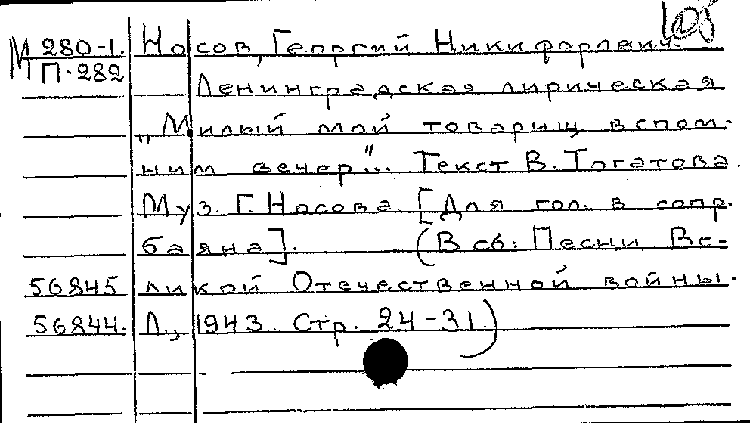 105
М 280-1. Носов, Георгий Никифорович.
П-282
Ленинградская лирическая
„Милый мой товарищ вспом-
ним вечер"... Текст В. Тогатова.
Муз. Г. Носова [Для гол. в сопр.
баяна]. (В сб: Песни Ве-
56845 ликой Отечественной войны.
56844. Л., 1943. Стр. 24-31)